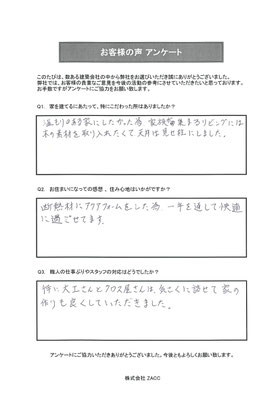 お客様の声 アンケート
このたびは、数ある建築会社の中から弊社をお選びいただき誠にありがとうございました。
弊社では、お客様の貴重なご意見を今後の活動の参考にさせていただきたいと思っております。
お手数ですがアンケートにご協力をお願い致します。
Q1. 家を建てるにあたって、特にこだわった所はありましたか？
温もりのある家にしたかった為 家族が集まるリビングには
木の素材を取り入れたくて天井は見せ柱にしました。
Q2. お住まいになっての感想、住み心地はいかがですか？
断熱材にアクアフォームをした為、一年を通して快適
に過ごせてます。
Q3. 職人の仕事ぶりやスタッフの対応はどうでしたか？
特に大工さんとクロス屋さんは、気さくに話せて家の
作りも良くしていただきました。
アンケートにご協力いただきありがとうございました。今後ともよろしくお願い致します。
株式会社 ZACC